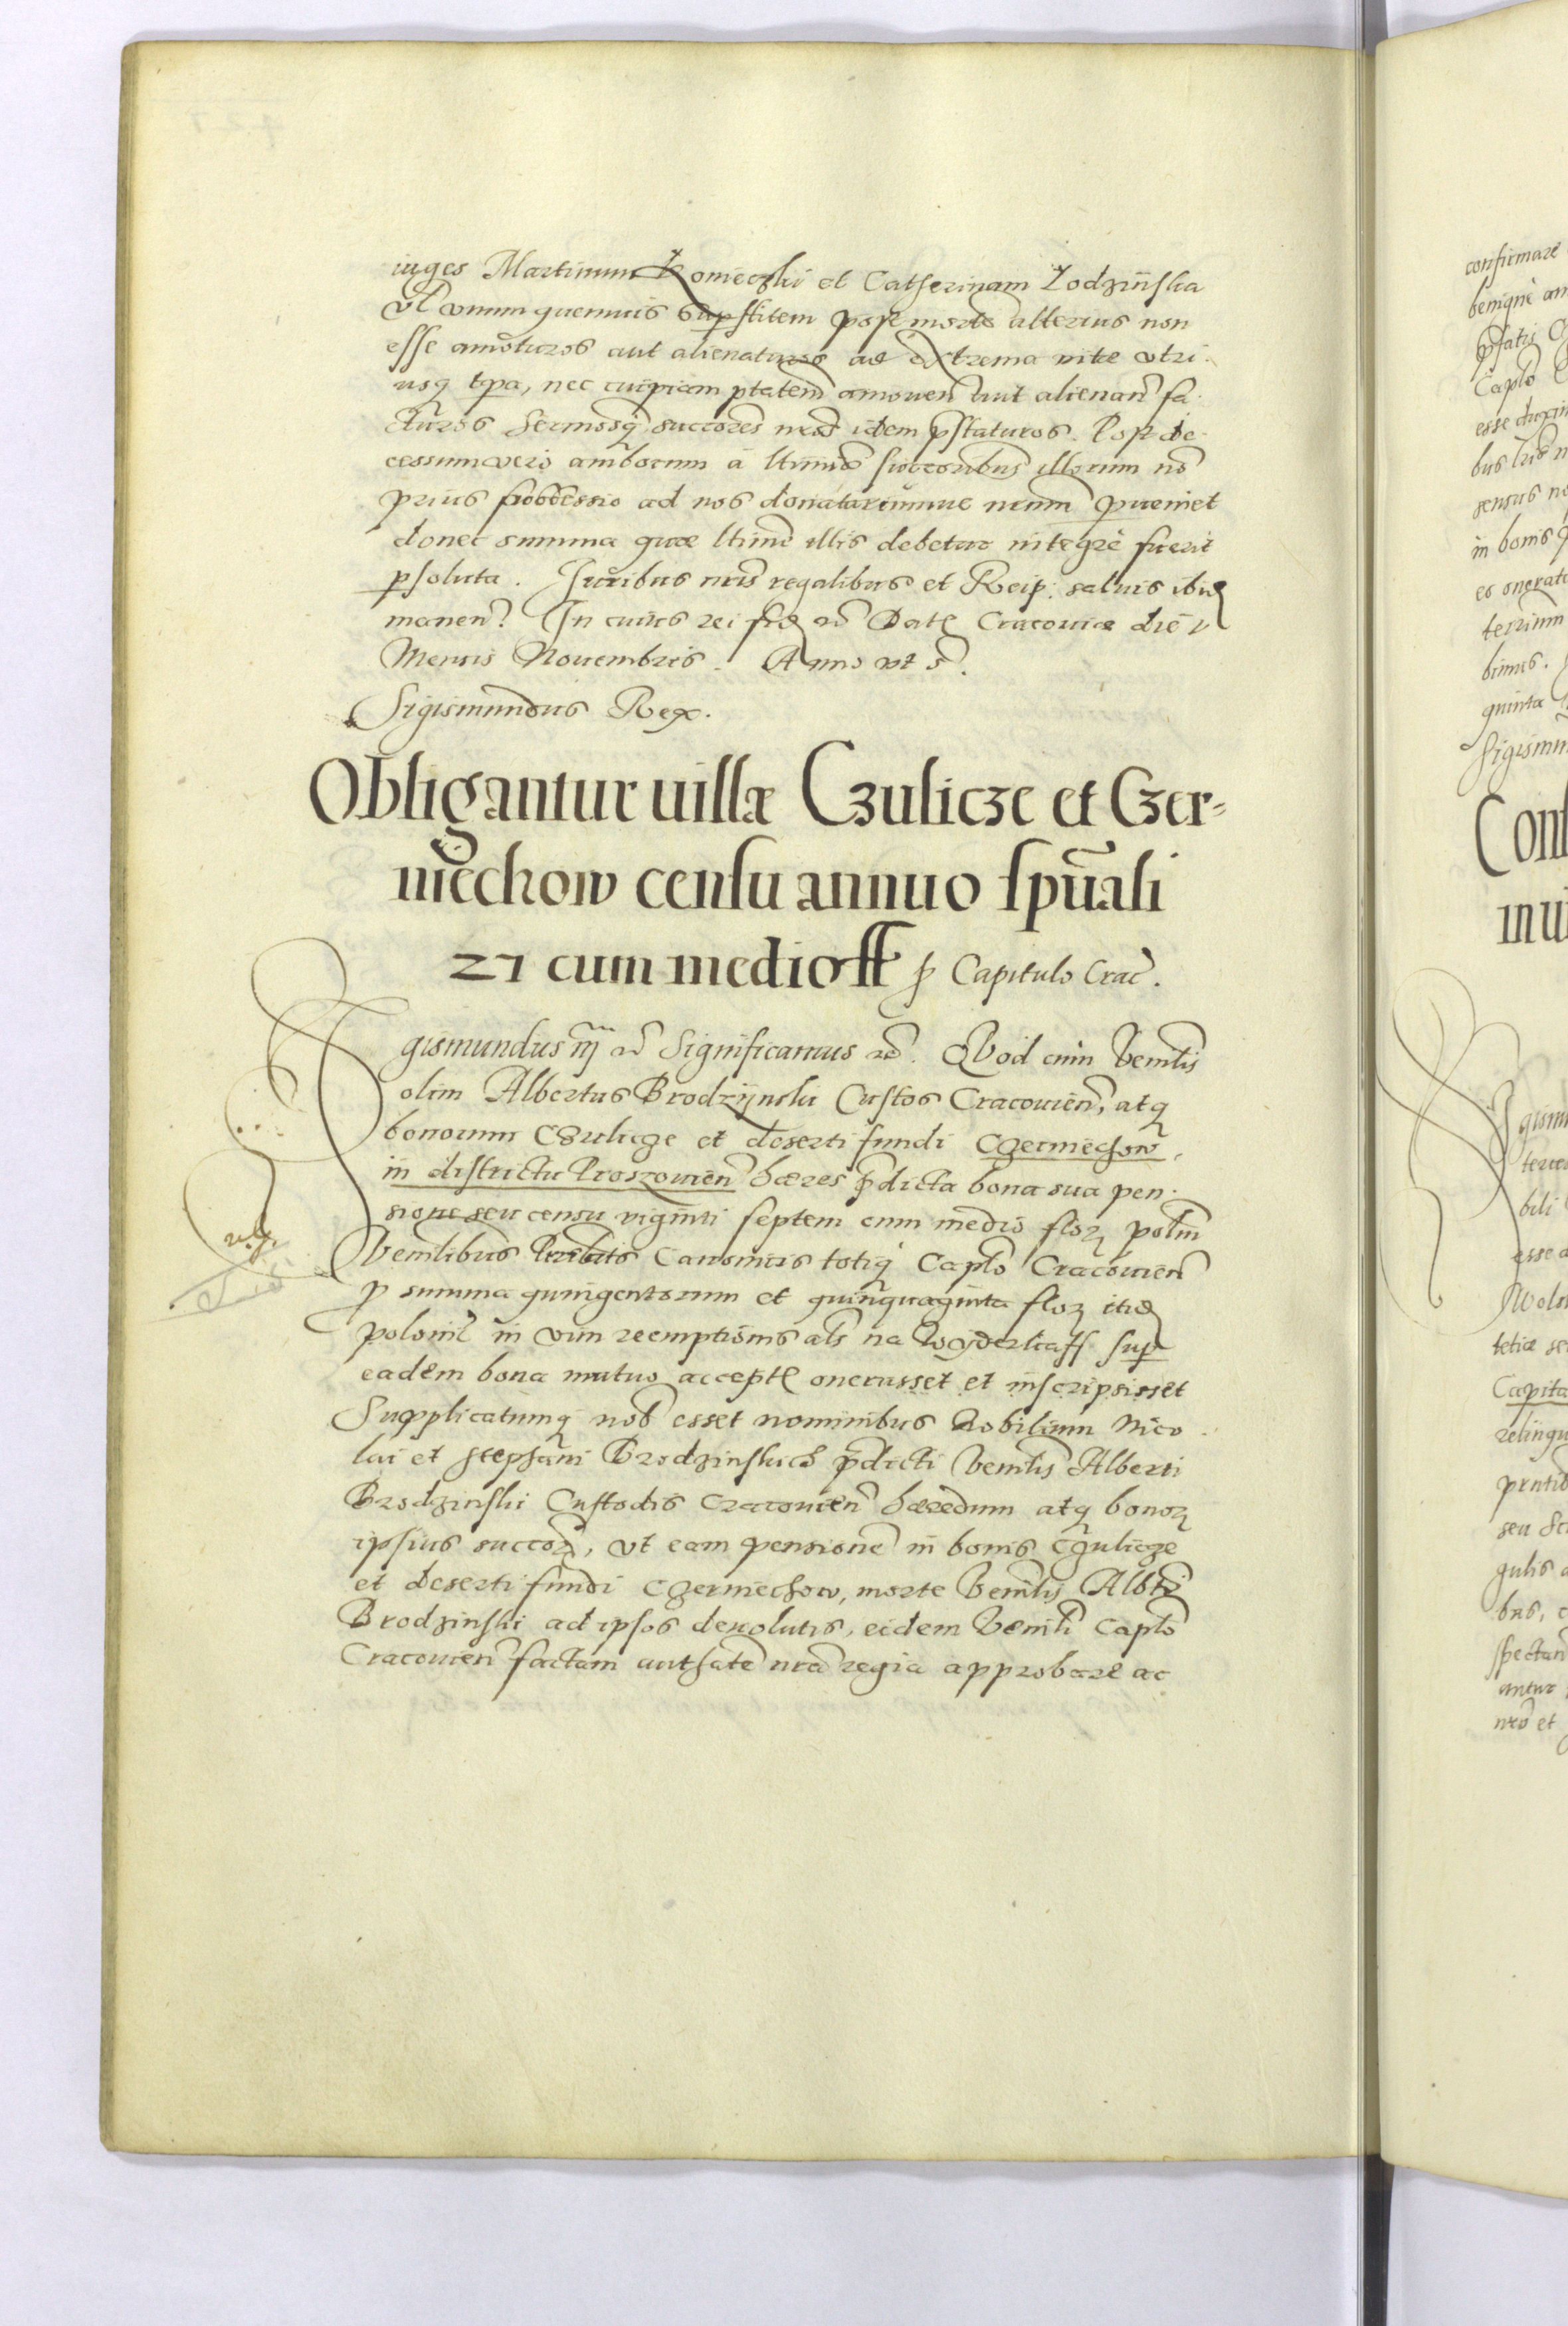 iuges Martinum Komeczki et Catherinam Zodzińska
vl unum quemuis supstitem post morte alterius non
esse amoturos aut alienaturos ad extrema vite utri-
usq tpa, nec cuipiam ptatem amouen aut alienan fa-
cturos Sermosq succores nros idem pstaturos. Post de-
cessum vero amborum a ltimis succoribus illorum no
prius possessio ad nos donatariumue nrum pueniet
donec summa quae ltime illis debetur integrè fuerit
psoluta. Iuribus nris regalibus et Reip: saluis ibid
manen. In cuius rei fid Dat Cracouiæ die V
Mensis Nouembris. Anno vt s.
Sigismundus Rex.
Obligantur uillæ Czulicze et Czer-
niechow censu annuo spuali
27 cum medio ff p Capitulo Crac.
Sigismundus iij Significamus. Quod cum Venlis
olim Albertus Brodzijnski Custos Cracouien, atq
bonorum Czulicze et deserti fundi Czerniechow,
in districtu Proszouien hæres pdicta bona sua pen-
sione seu censu viginti septem cum medio flor polin
Venlibus Prelatis Canonicis totiq Caplo Cracouien
p summa quingentorum et quinquaginta flor itid
polonil in vim reemptionis als na Wyderkaff sup
eadem bona mutuo accepte onerasset et inscripsisset
Supplicatumq nob esset nominibus Nobilium Nico
lai et Stephani Brodzinskich pdicti Venlis Alberti
Brodzinski Custodis Cracouien hæredum atq bonor
ipsius succor, vt eam pensione in bonis Czulicze
et deserti fundi Czerniechow, morte Venlis Albti
Brodzinski ad ipsos deuolutis, eidem Venli Caplo
Cracouien factam authate nra regia approbare ac